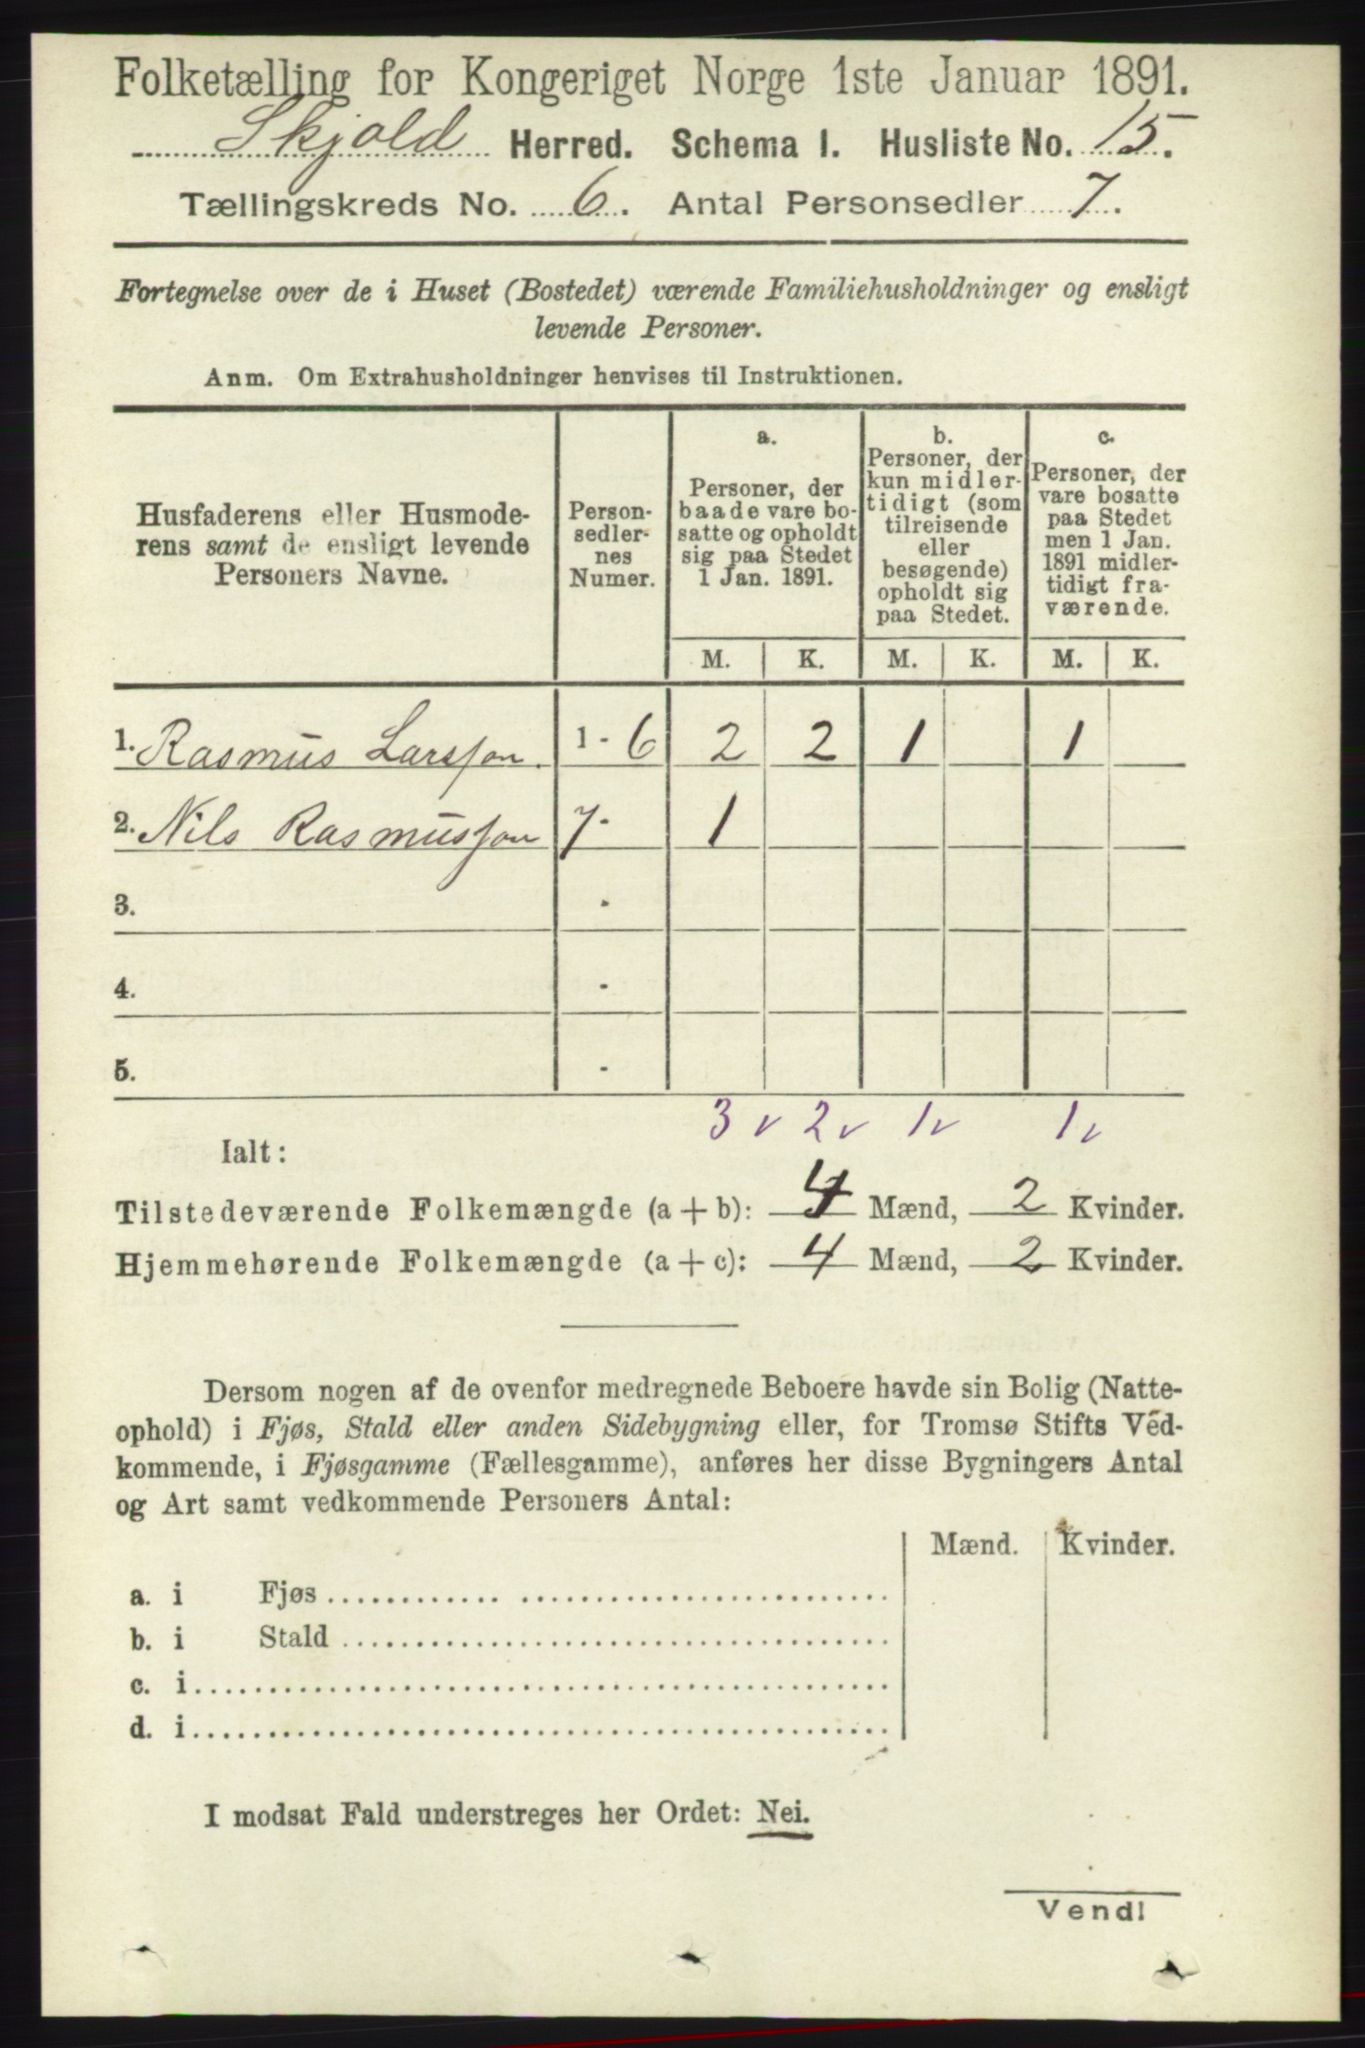 Folketælling for Kongeriget Norge 1ste Januar 1891.
Skjold Herred. Schema I. Husliste No. 15.
Tællingskreds No. 6. Antal Personsedler 7.
Fortegnelse over de i Huset (Bostedet) værende Familiehusholdninger og ensligt
levende Personer.
Anm. Om Extrahusholdninger henvises til Instruktionen.
Husfaderens eller Husmode-
rens samt de ensligt levende
Personers Navne.
Person-
sedler-
nes
Numer.
a.
Personer, der
baade vare bo-
satte og opholdt
sig paa Stedet
1 Jan. 1891.
b.
Personer, der
kun midler-
tidigt (som
tilreisende
eller
besøgende)
opholdt sig
paa Stedet.
c.
Personer, der
vare bosatte
paa Stedet
men 1 Jan.
1891 midler-
tidigt fra-
værende.
M. K. M. K. M. K.
1. Rasmus Larsson. 1 - 6 2 2 1 1
2. Nils Rasmusson 7 - 1
3. -
4. -
5. -
3 v 2 v 1 v 1 v
Ialt:
Tilstedeværende Folkemængde (a + b): 4 Mænd, 2 Kvinder.
Hjemmehørende Folkemængde (a + c): 4 Mænd, 2 Kvinder.
Dersom nogen af de ovenfor medregnede Beboere havde sin Bolig (Natte-
ophold) i Fjøs, Stald eller anden Sidebygning eller, for Tromsø Stifts Ved-
kommende, i Fjøsgamme (Fællesgamme), anføres her disse Bygningers Antal
og Art samt vedkommende Personers Antal:
Mænd. Kvinder.
a. i Fjøs
b. i Stald
c. i
d. i
I modsat Fald understreges her Ordet: Nei.
Vend!